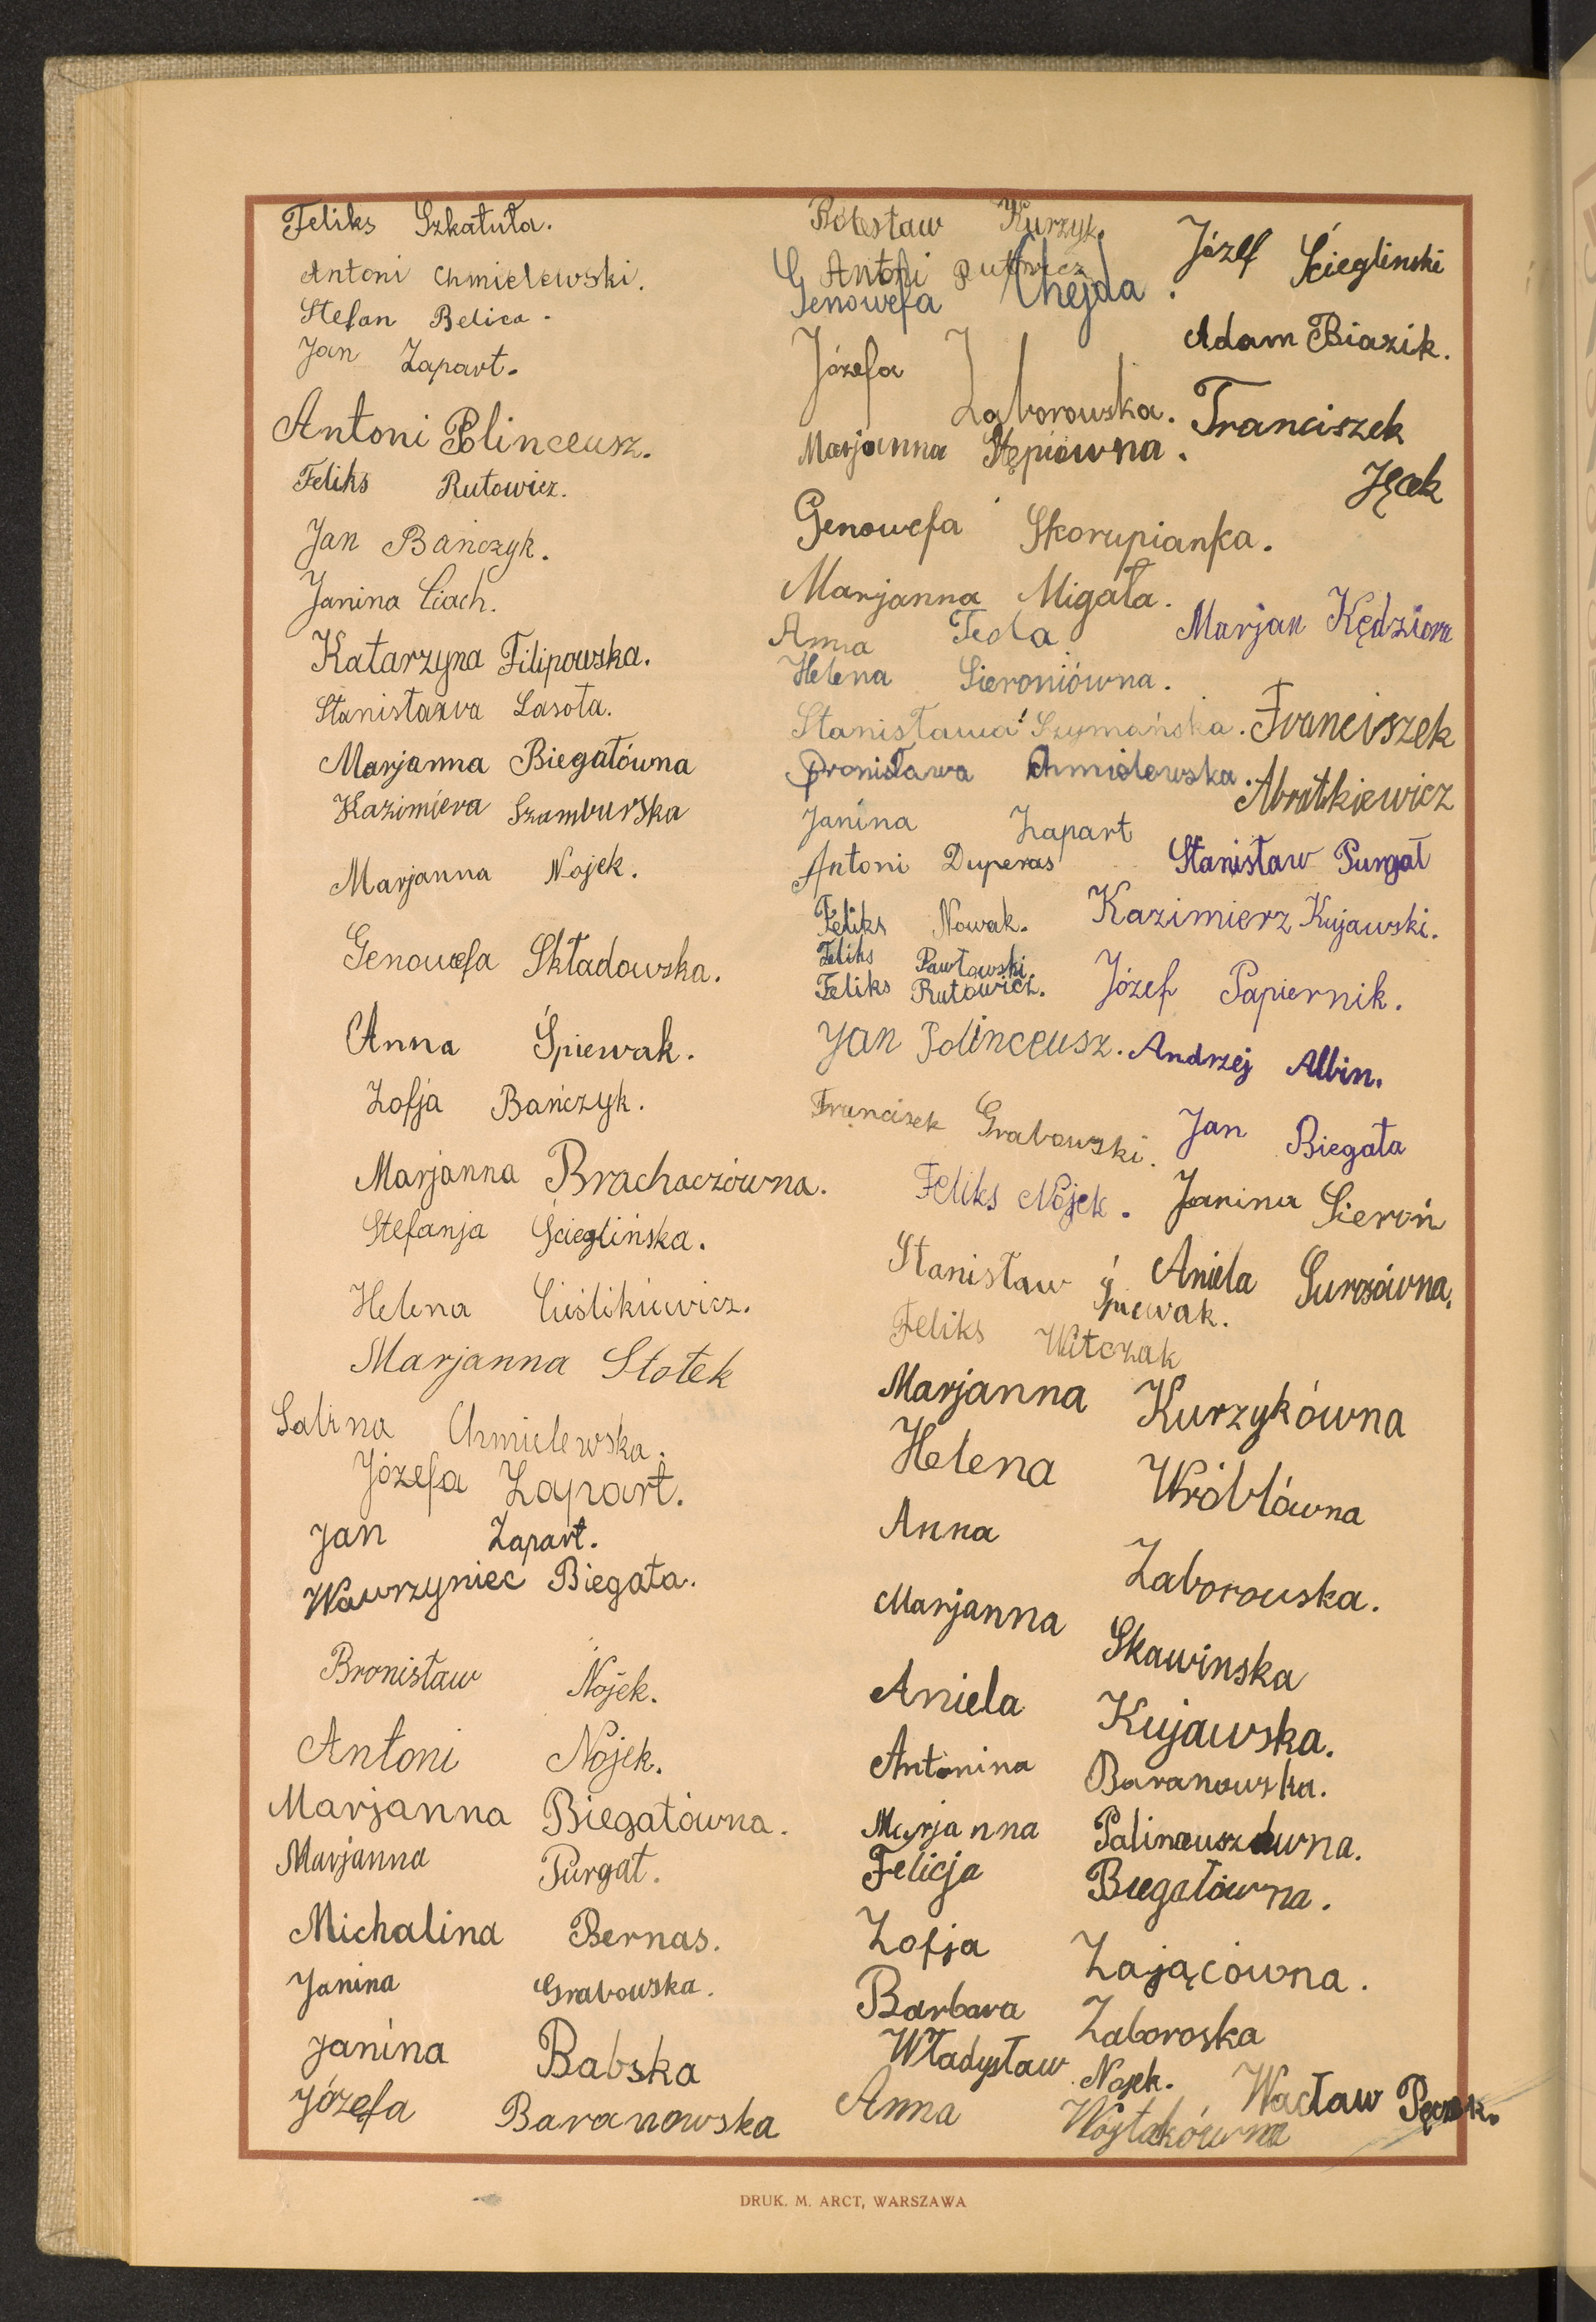 Feliks Szkatuła.
Antoni Chmielewski.
Stefan Belica.
Jan Zapart.
Antoni Polinceusz.
Feliks Rutowicz.
Jan Bańczyk.
Janina Ciach.
Katarzyna Filipowska.
Stanisława Lasota.
Marjanna Biegałówna
Kazimiera Szamburska
Marjanna Nojek.
Genowefa Składowska.
Anna Śpiewak.
Zofja Bańczyk.
Marjanna Brachaczówna.
Stefanja Ścieglińska.
Helena Cieślikiewicz.
Marjanna Stołek
Sabina Chmielewska.
Józefa Zapart.
Jan Zapart.
Wawrzyniec Biegała.
Bronisław Nojek.
Antoni Nojek.
Marjanna Biegałówna.
Marjanna Purgat.
Michalina Bernas.
Janina Grabowska.
Janina Babska
Józefa Baranowska
Bolesław Kurzyk.
G Antoni Rutowicz
Genowefa Chejda.
Józefa Zaborowska.
Marjanna Stępiówna.
Genowefa Skorupianka.
Marjanna Migała.
Anna Teda
Helena Sieroniówna.
Stanisława Szymańska.
Bronisława Chmielewska.
Janina Zapart
Antoni Duperas
Feliks Nowak.
Feliks Pawłowski.
Feliks Rutowicz.
Jan Polinceusz.
Francisek Grabowski.
Feliks Nojek.
Stanisław Śpiewak.
Feliks Witczak
Józef Ściegliński
Adam Biazik.
Franciszek
Jęcek
Marjan Kędziora
Franciszek
Abratkiewicz
Stanisław Purgał
Kazimierz Kujawski.
Józef Papiernik.
Andrzej Albin.
Jan Biegała
Janina Sieroń
Aniela Gurosówna.
Marjanna Kurzykówna
Helena Wróblówna
Anna Zaborouska.
Marjanna Skawinska
Aniela Kujawska.
Antonina Baranowska.
Marjanna Palinceuszówna.
Felicja Biegałówna.
Zofja Zającówna.
Barbara Zaboroska
Władysław Nojek.
Anna Wojtakówna
Wacław
DRUK. M. ARCT, WARSZAWA